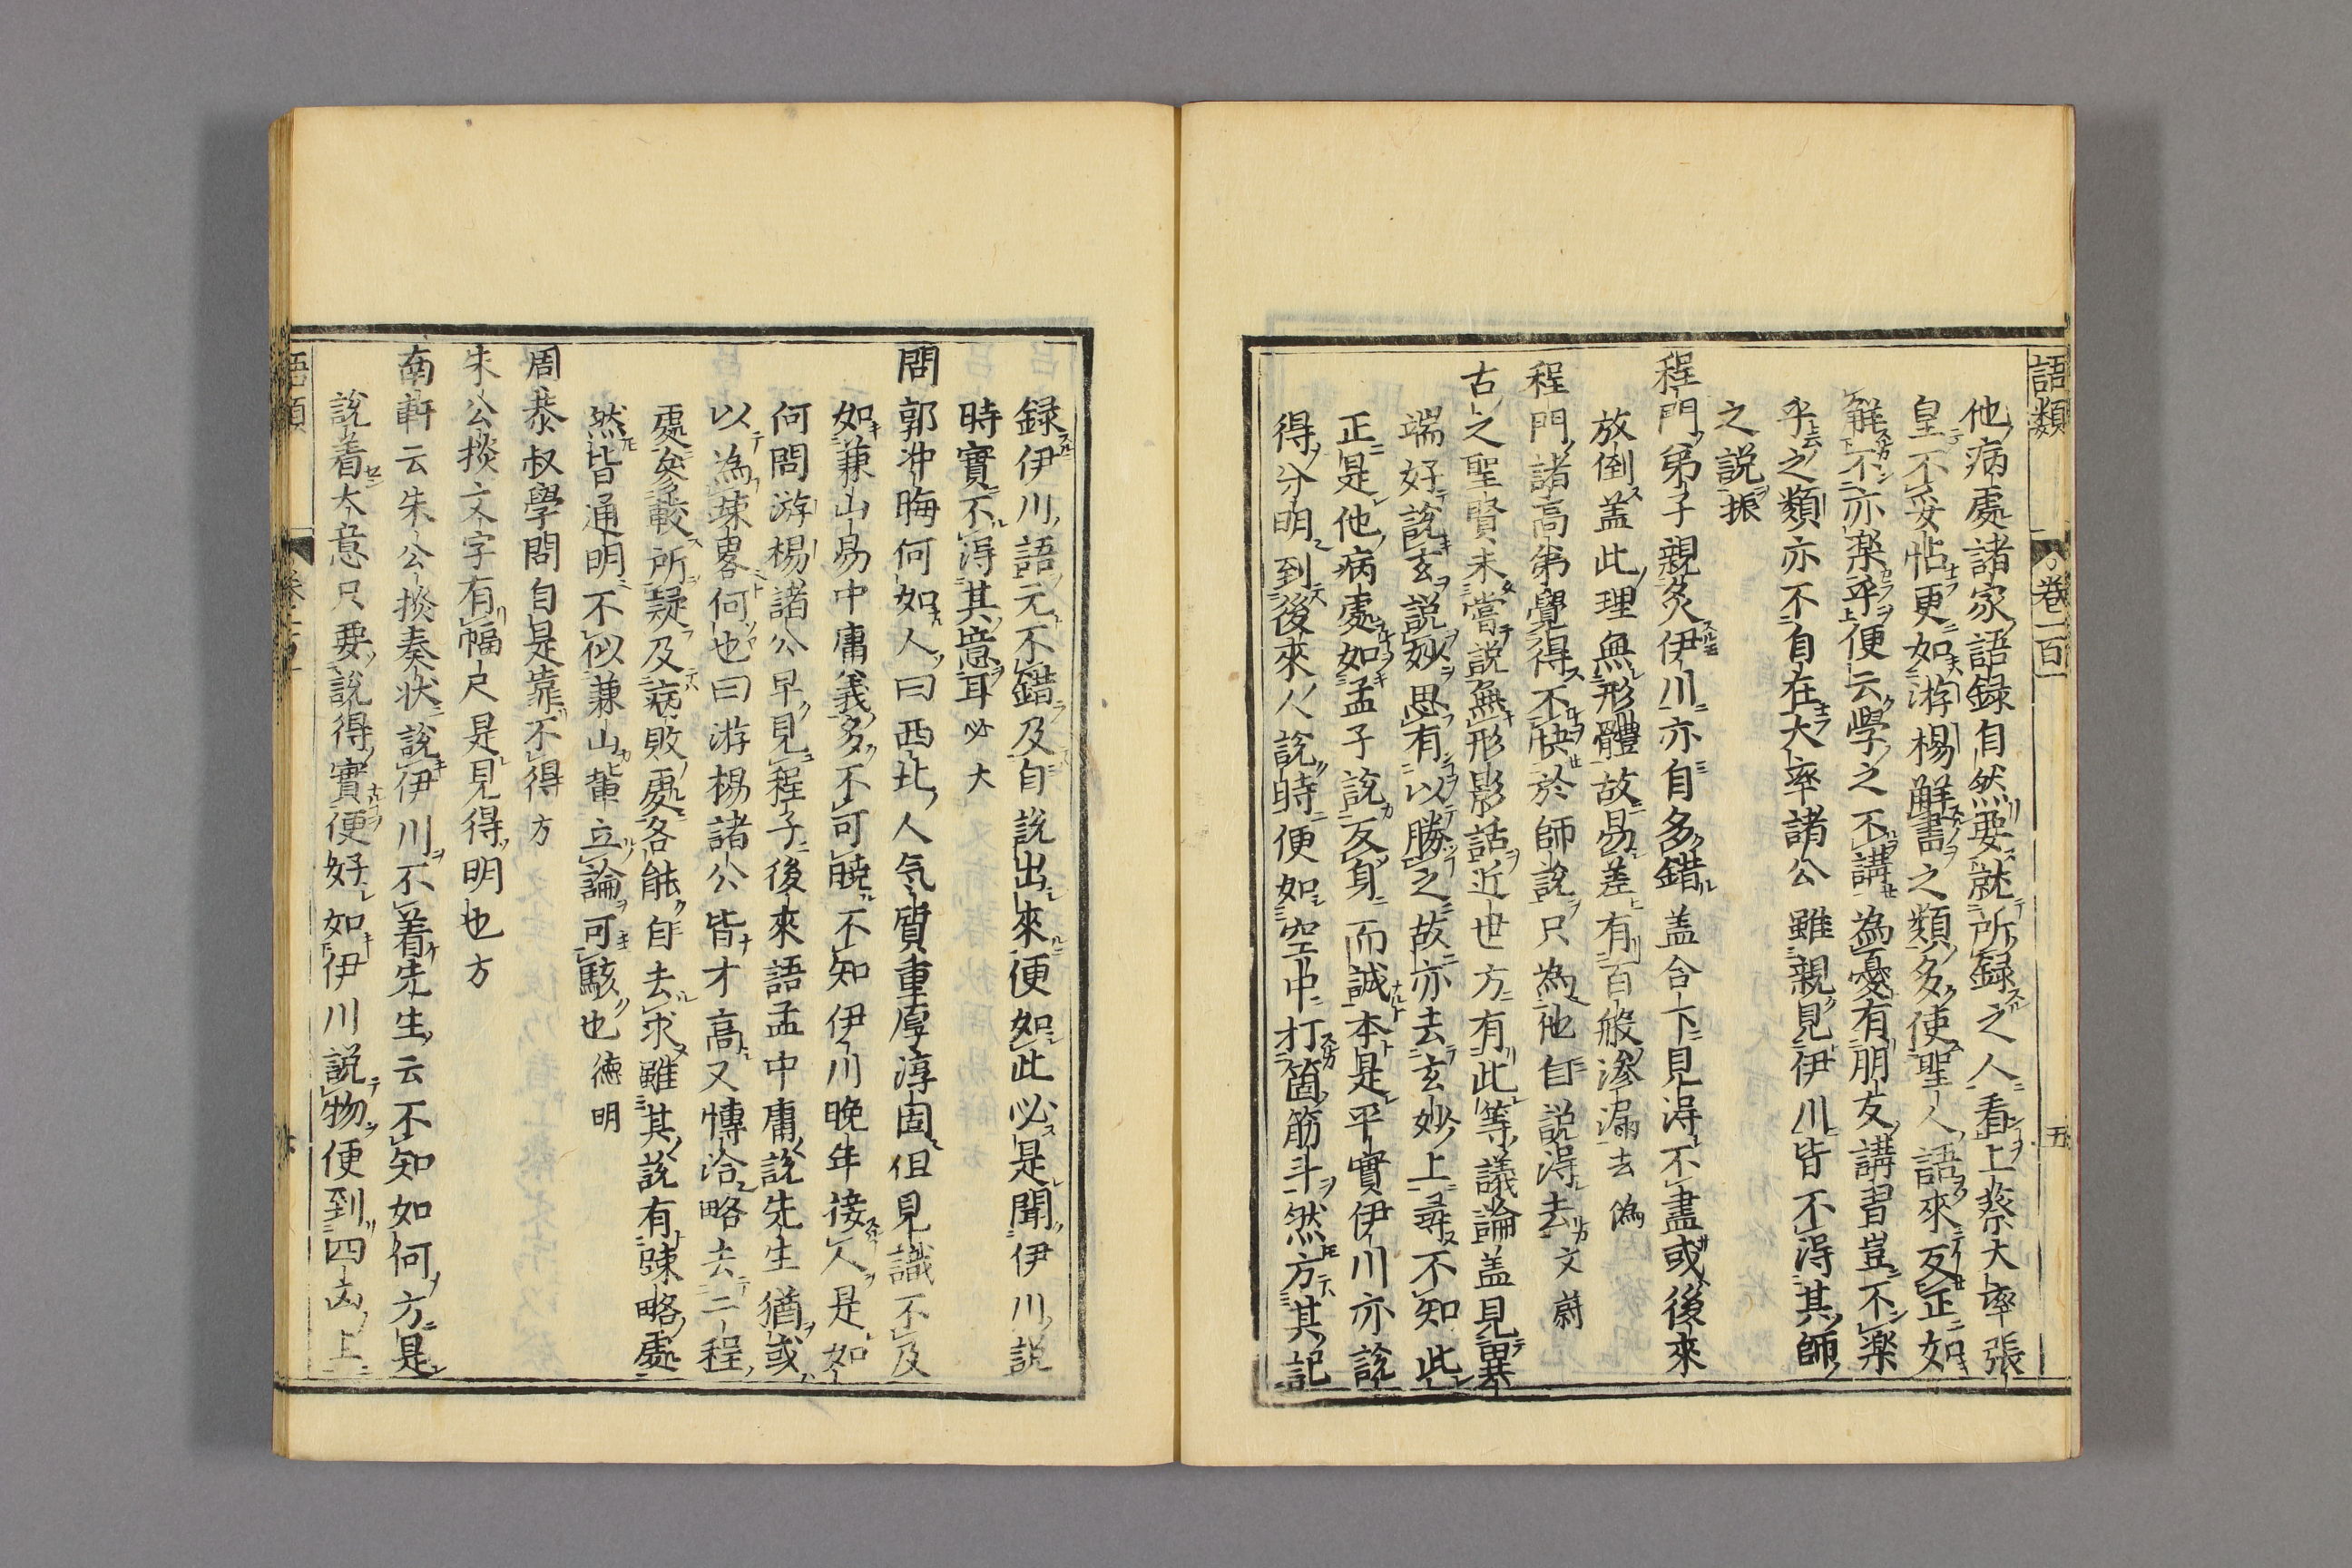 語類 卷一百一 五
他病處諸家語錄自然要就所録之人看上蔡大率張
皇不妥帖更如游楊解書之類多使聖人語來反正如
解不亦楽乎便云學之不講為憂有朋友講習豈不楽
乎之類亦不自在大率諸公雖親見伊川皆不淂其師
之説 振
程門弟子親炙伊川亦自多錯盖合下見淂不盡或後來
放倒盖此理無形體故易差有百般滲漏去偽
程門諸高第覺得不快於師說只為他自説淂去 文蔚
古之聖賢未嘗説無形影話近世方有此等議論盖見異
端好說玄説妙思有以勝之故亦去玄妙上尋不知此
正是他病處如孟子説反身而誠本是平實伊川亦說
得分明到後來人說時便如空中打箇筋斗然方其記
録伊川語元不錯及自說出來便如此必是聞伊川説
時實不淂其意耳 必大
問郭冲晦何如人曰西北人気質重厚淳固但見識不及
如兼山易中庸義多不可曉不知伊川晩年接人是如
何問游楊諸公早見程子後來語孟中庸說先生猶或
以為疎畧何也曰游楊諸公皆才高又博洽略去二程
處參較所疑及病敗處各能自去求雖其說有疎略處
然皆通明不似兼山軰立論可駭也 徳明
周恭叔學問自是靠不得 方
朱公掞文字有幅尺是見得明也 方
南軒云朱公掞奏状説伊川不着先生云不知如何方是
說着大意只要說得實便好如伊川説物便到四凶上
語類